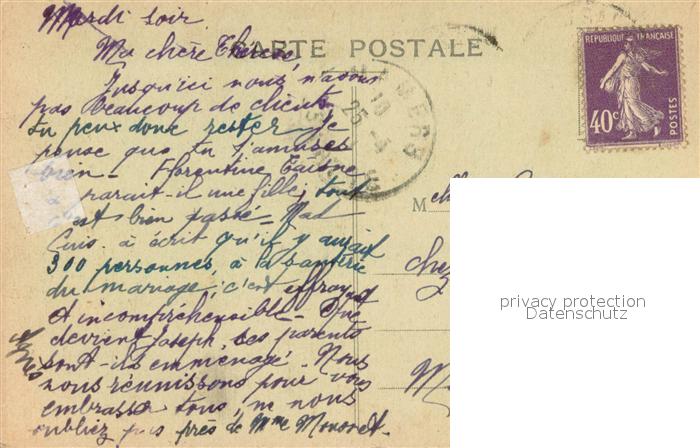 Mardi soir
Ma chère Thérèse,
CARTE POSTALE
Jusqu'ici nous n'avons
pas beaucoup de clients
tu peux donc rester. Je
pense que tu t'amuses
bien - Florentine
parait-il une fille, tout
est bien passé - Mad
à écrit qu'il y avait
300 personnes, à la
du mariage, c'est effrayant
et incompréhensible - Que
devient Joseph, ses parents
sont-ils emménagé. Nous
nous réunissons pour vous
embrasser tous, ne nous
oubliez pas près de Mme
Agnès
REPUBLIQUE FRANÇAISE
40c
POSTES
M elle
chez
privacy protection
Datenschutz